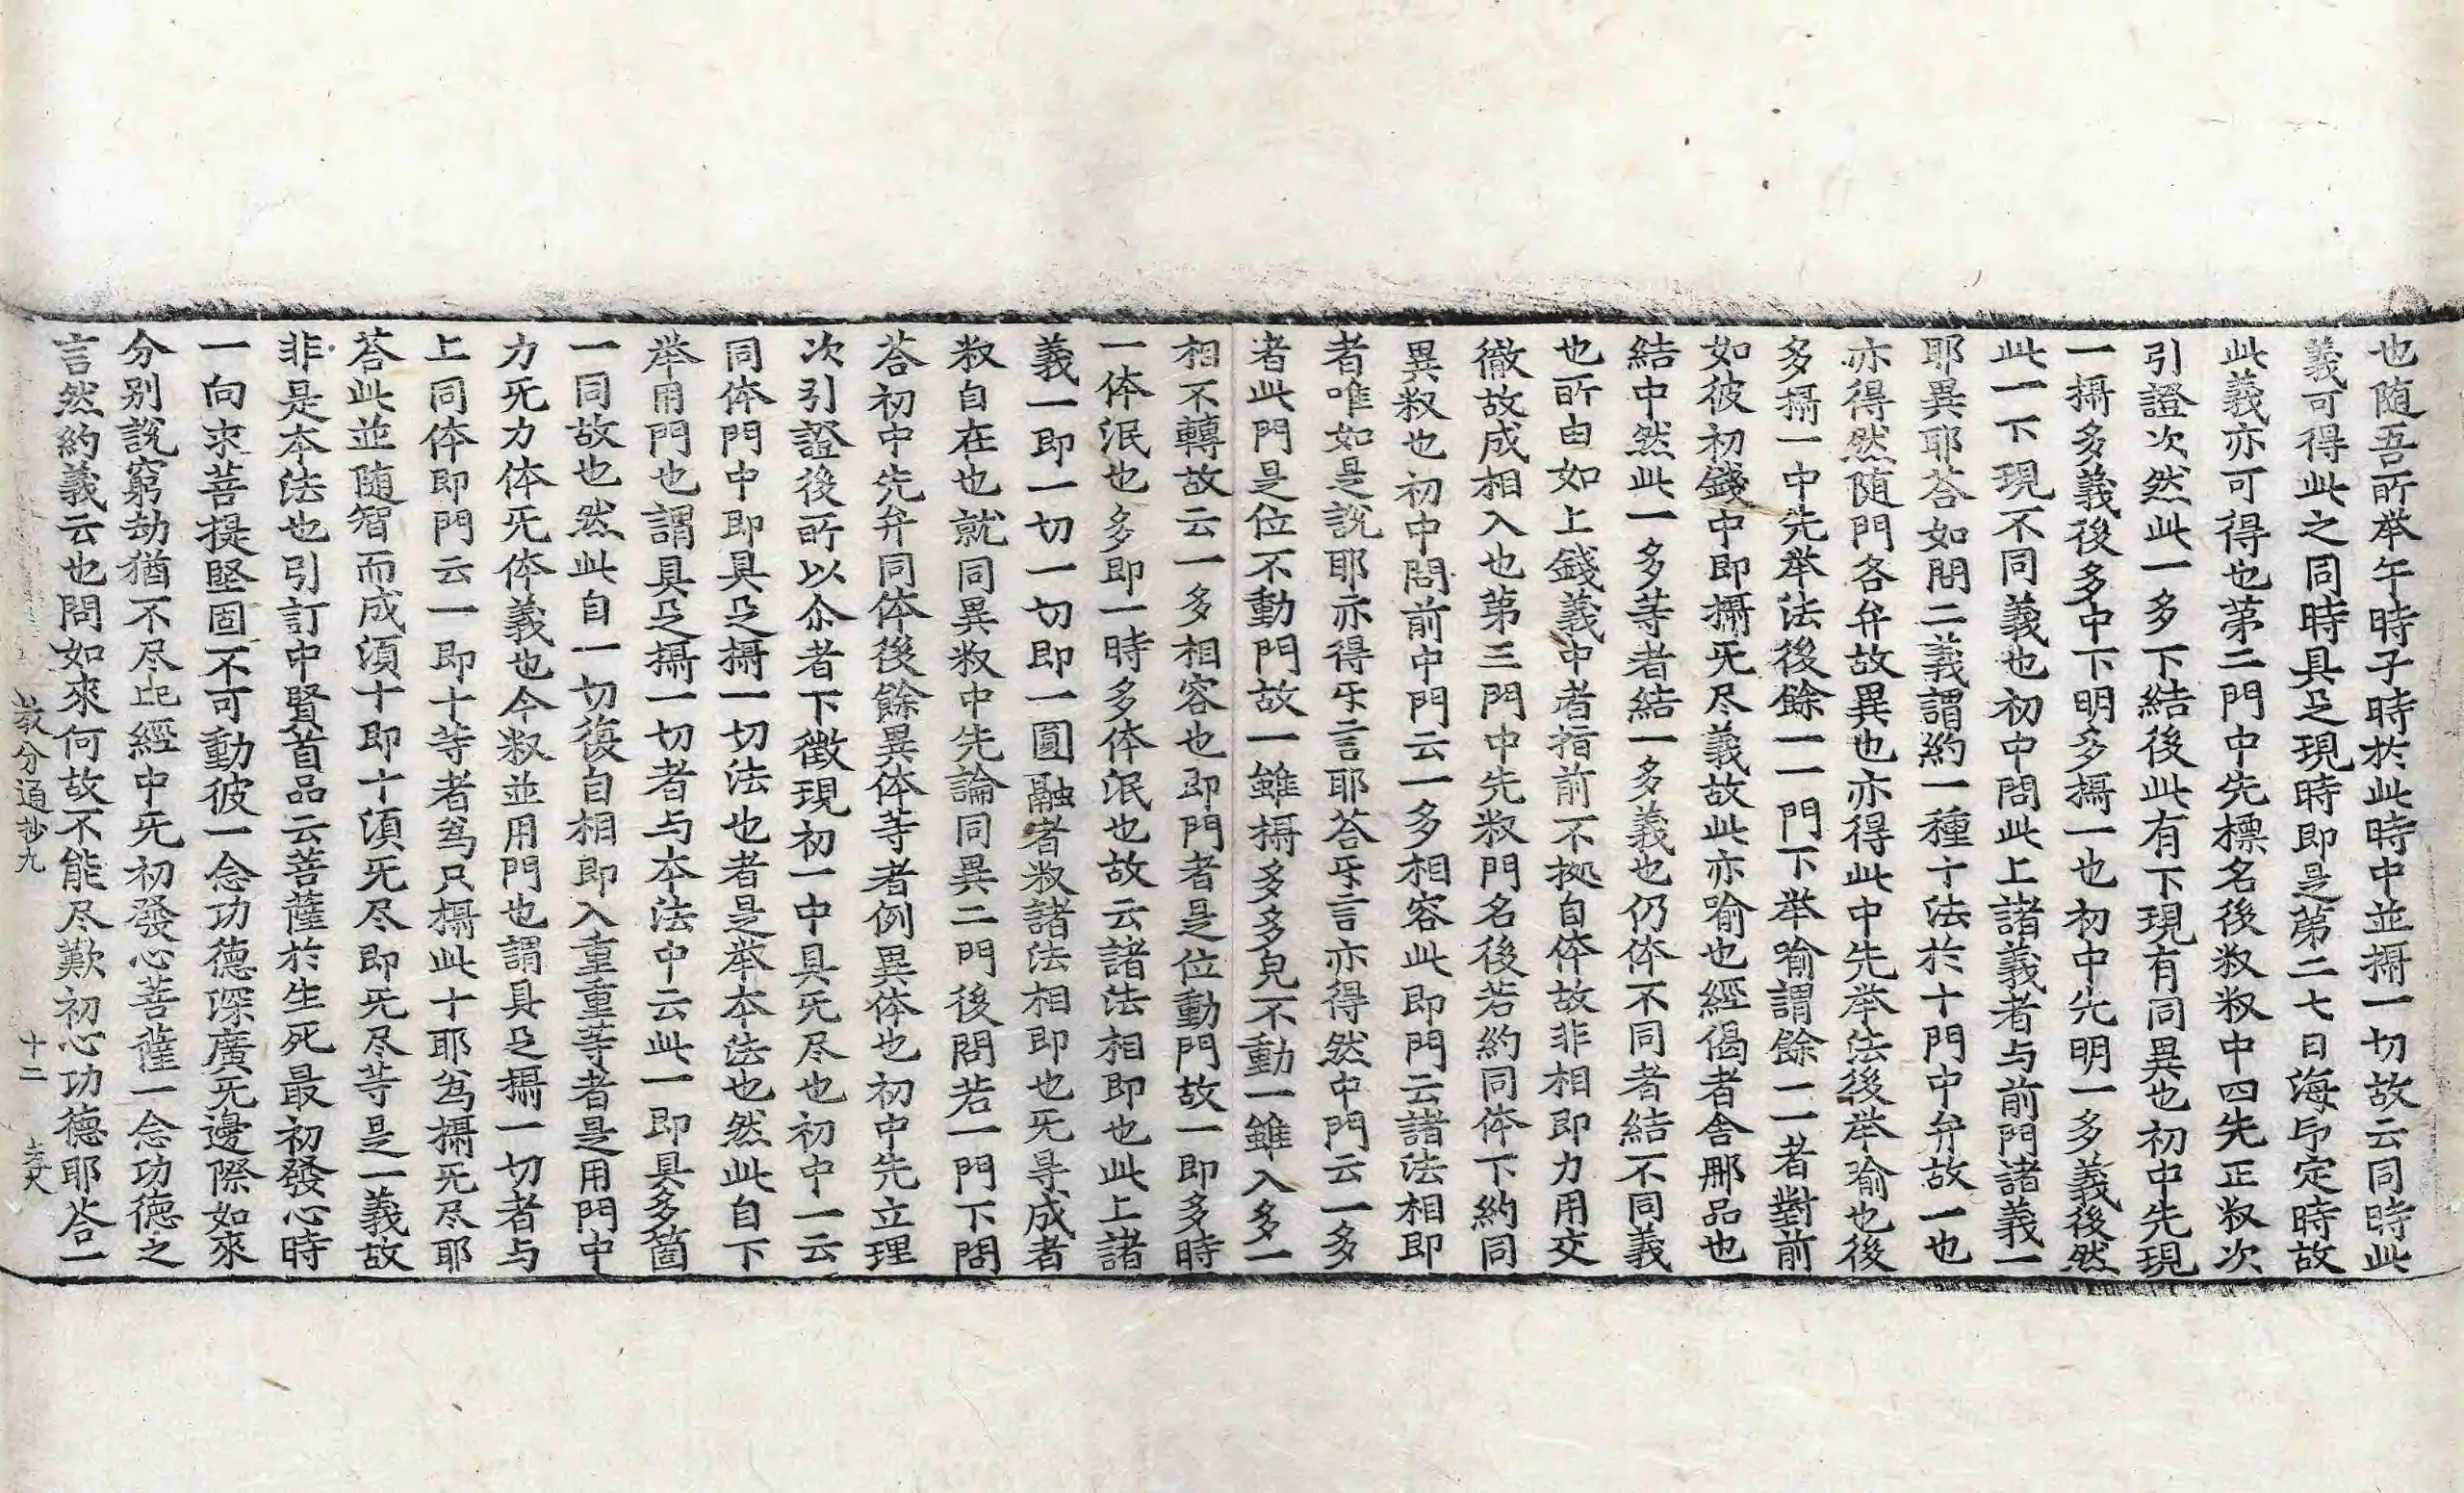 也随吾所举午時子時於此時中並攝一切故云同時此
義可得此之同時具足現時即是第二七日海印定時故
此義亦可得也第二門中先標名後釈釈中四先正釈次
引證次然此一多下結後此有下現有同異也初中先現
一攝多義後多中下明多攝一也初中先明一多義後然
此一下現不同義也初中問此上諸義者与前門諸義一
耶異耶荅如問二義謂約一種十法於十門中弁故一也
亦得然随門各弁故異也亦得此中先举法後举喻也後
多攝一中先举法後餘一一門下举喻謂餘一一者對前
如彼初錢中即攝旡尽義故此亦喻也經偈者舍那品也
結中然此一多等者結一多義也仍体不同者結不同義
也所由如上錢義中者指前不拠自体故非相即力用交
徹故成相入也第三門中先釈門名後若約同体下約同
異釈也初中問前中門云一多相容此即門云諸法相即
者唯如是說耶亦得牙言耶荅牙言亦得然中門云一多
者此門是位不動門故一雖攝多多皃不動一雖入多一
相不轉故云一多相容也即門者是位動門故一即多時
一体泯也多即一時多体泯也故云諸法相即也此上諸
義一即一切一切即一圓融者釈諸法相即也旡㝵成者
釈自在也就同異釈中先論同異二門後問若一門下問
荅初中先弁同体後餘異体等者例異体也初中先立理
次引證後所以尒者下徵現初一中具旡尽也初中一云
同体門中即具足攝一切法也者是举本法也然此自下
举用門也謂具足攝一切者与本法中云此一即具多箇
一同故也然此自一切復自相即入重重等者是用門中
力旡力体旡体義也今釈並用門也謂具足攝一切者与
上同体即門云一即十等者爲只攝此十耶爲攝旡尽耶
荅此並随智而成湏十即十湏旡尽即旡尽等是一義故
非是本法也引訂中賢首品云菩薩於生死最初發心時
一向求菩提堅固不可動彼一念功德深廣旡邊際如來
分別說窮劫猶不尽此經中旡初發心菩薩一念功德之
言然約義云也問如來何故不能尽歎初心功德耶荅一
教分通抄九　十二